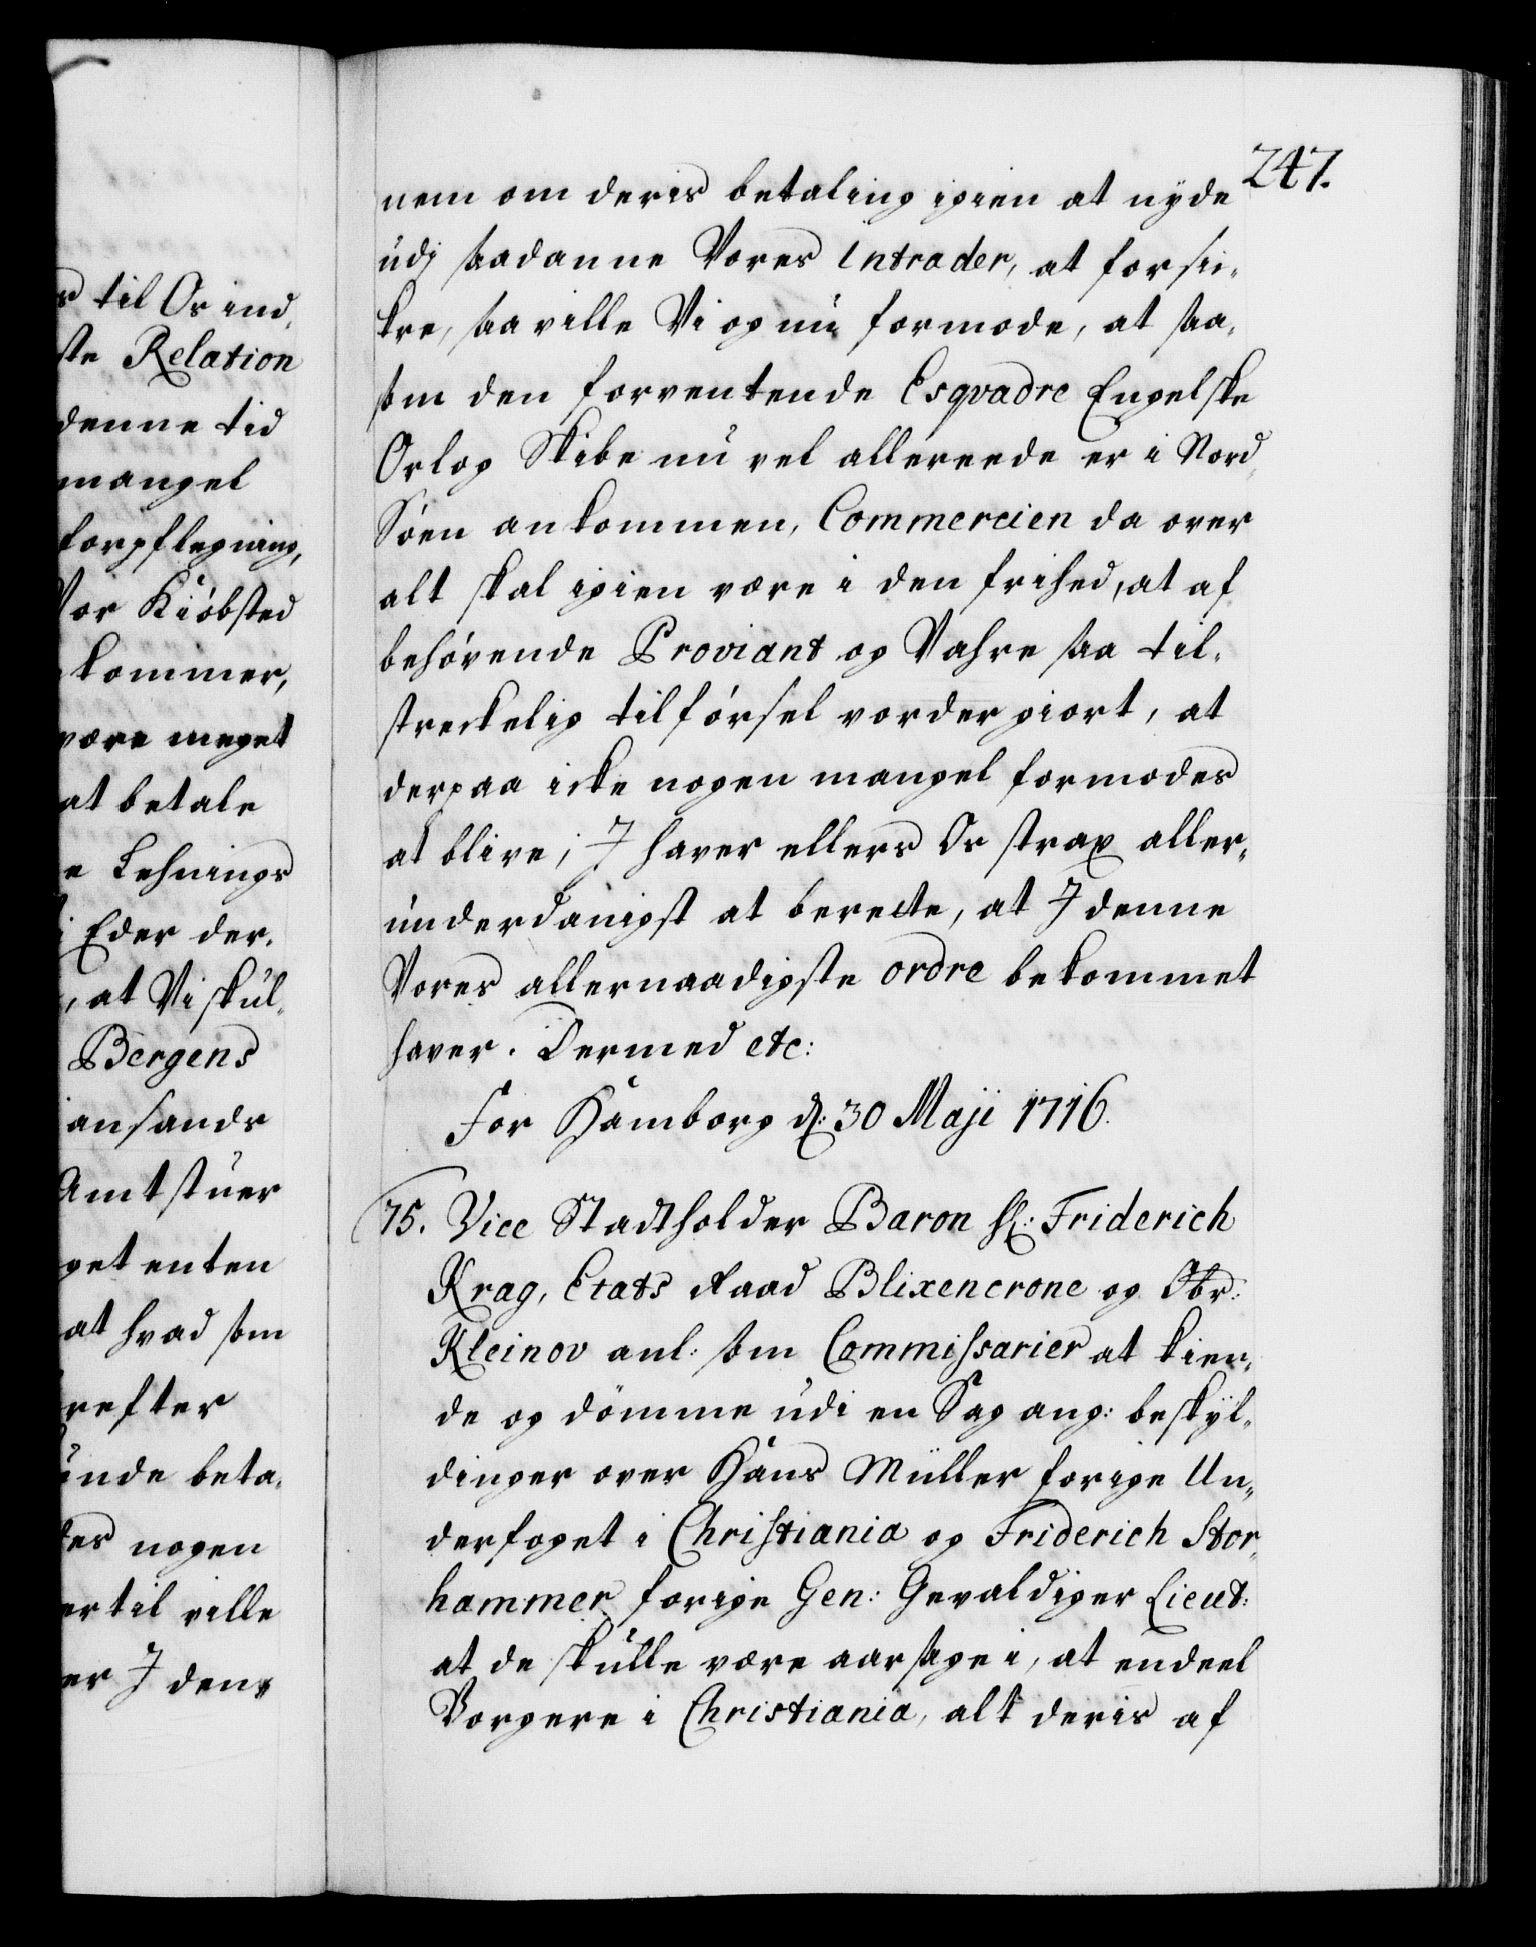 s til Os ind,
ste Relation
denne tid
mangel
forpflegning,
Vor Kiöbsted
kommer,
være meget
at betale
e Lehnings
i Eder der,
, at Vi skul,
Bergens
iansands
Amtstuer
get enten
at hvad som
refter
inde beta,
des nogen
er til ville
er I den,
247.
nem om deris betaling igien at nyde
udj saadanne Vores Intrader, at forsii,
kre, saa ville Vi og nu formode, at saa,
som den forventende Esqvadre Engelske
Orlog Skibe nu vel allereede er i Nord,
Söen ankommen, Commercien da over
alt skal igien være i den frihed, at af
behövende Proviant og Vahre saa til,
streckelig tilförsel vorder giort, at
derpaa icke nogen mangel formodes
at blive; I haver ellers Os strax aller,
underdanigst at berette, at I denne
Vores allernaadigste ordre bekommet
haver. Dermed etc:
For Hamborg d: 30 Maji 1716.
75. Vice Stadtholder Baron H: Friderich
Krag, Etats Raad Blixencrone og Obr:
Kleinov anl: som Commissarier at kien,
de og dömme udi en Sag ang: beskyl,
dinger over Hans Müller forige Un,
derfoget i Christiania og Friderich Stor,
hammer forige Gen: Gevaldiger Lieut:
at de skulle være aarsage i, at endeel
Borgere i Christiania, alt deris af